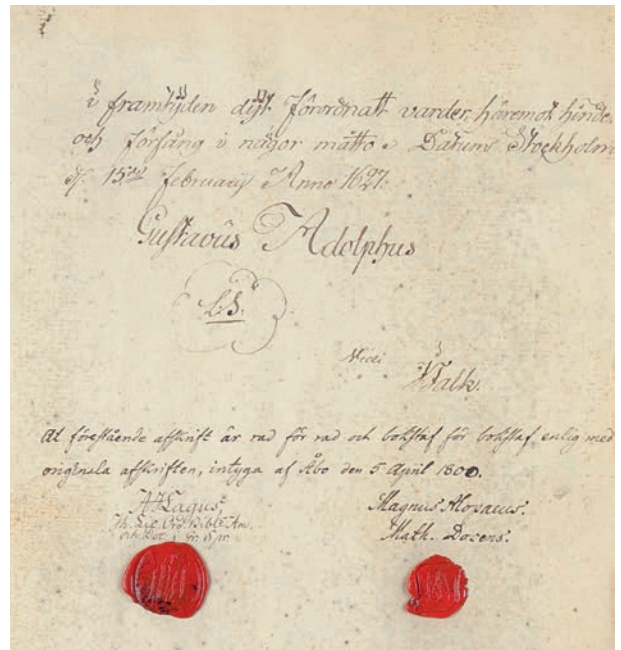 i framtijden dijt förordnatt varder, häremot hinder
och förfång i någor måtto. Datum Stockholm
d. 15de February Anno 1627.
Gustavus Adolphus
L.S.
Vidi
Falk.
At förestående afskrift är rad för rad och bokstaf för bokstaf enlig med
originala afskriften, intyga af Åbo den 5 April 1800.
Lagus. Magnus Alopaeus.
Math. Docens.